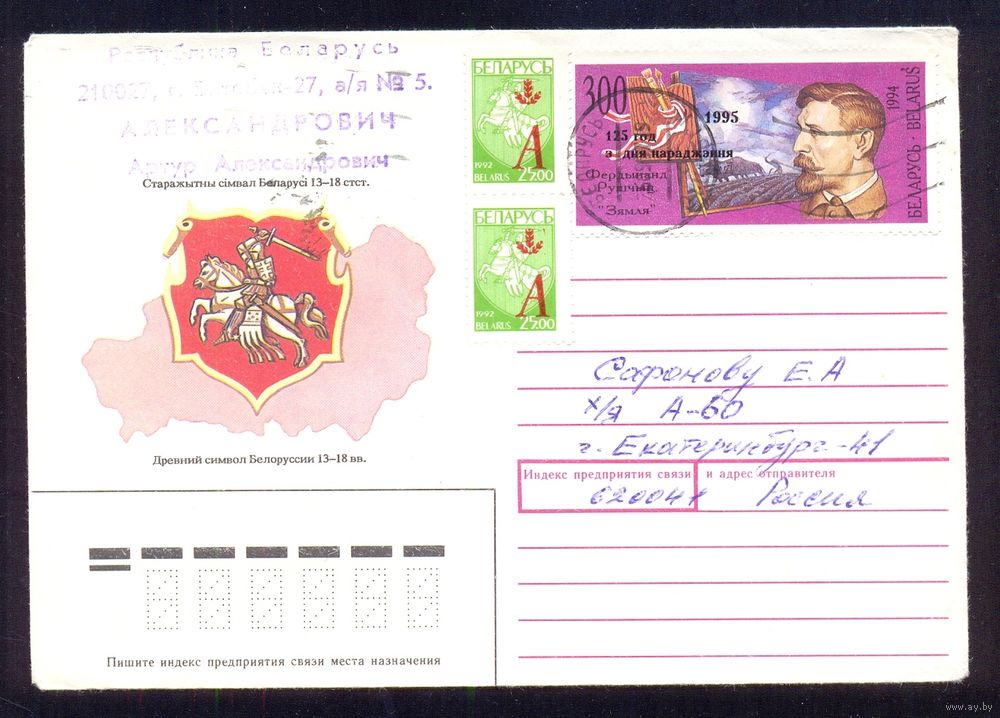 Республика Беларусь
210027, г. Витебск-27, а/я № 5.
АЛЕКСАНДРОВИЧ
Артур Александрович
Старажытны сімвал Беларусі 13–18 стст.
Древний символ Белоруссии 13–18 вв.
БЕЛАРУСЬ
А
1992
BELARUS 25.00
БЕЛАРУСЬ
А
1992
BELARUS 25.00
300
1995
125 год
з дня нараджэння
Фердынанд
Рушчыц
"Зямля"
БЕЛАРУСЬ · BELARUŚ
1994
БЕЛАРУСЬ
Сафонову Е.А
а/я А-60
г. Екатеринбург-41
Индекс предприятия связи и адрес отправителя
620041 Россия
Пишите индекс предприятия связи места назначения
www.ay.by